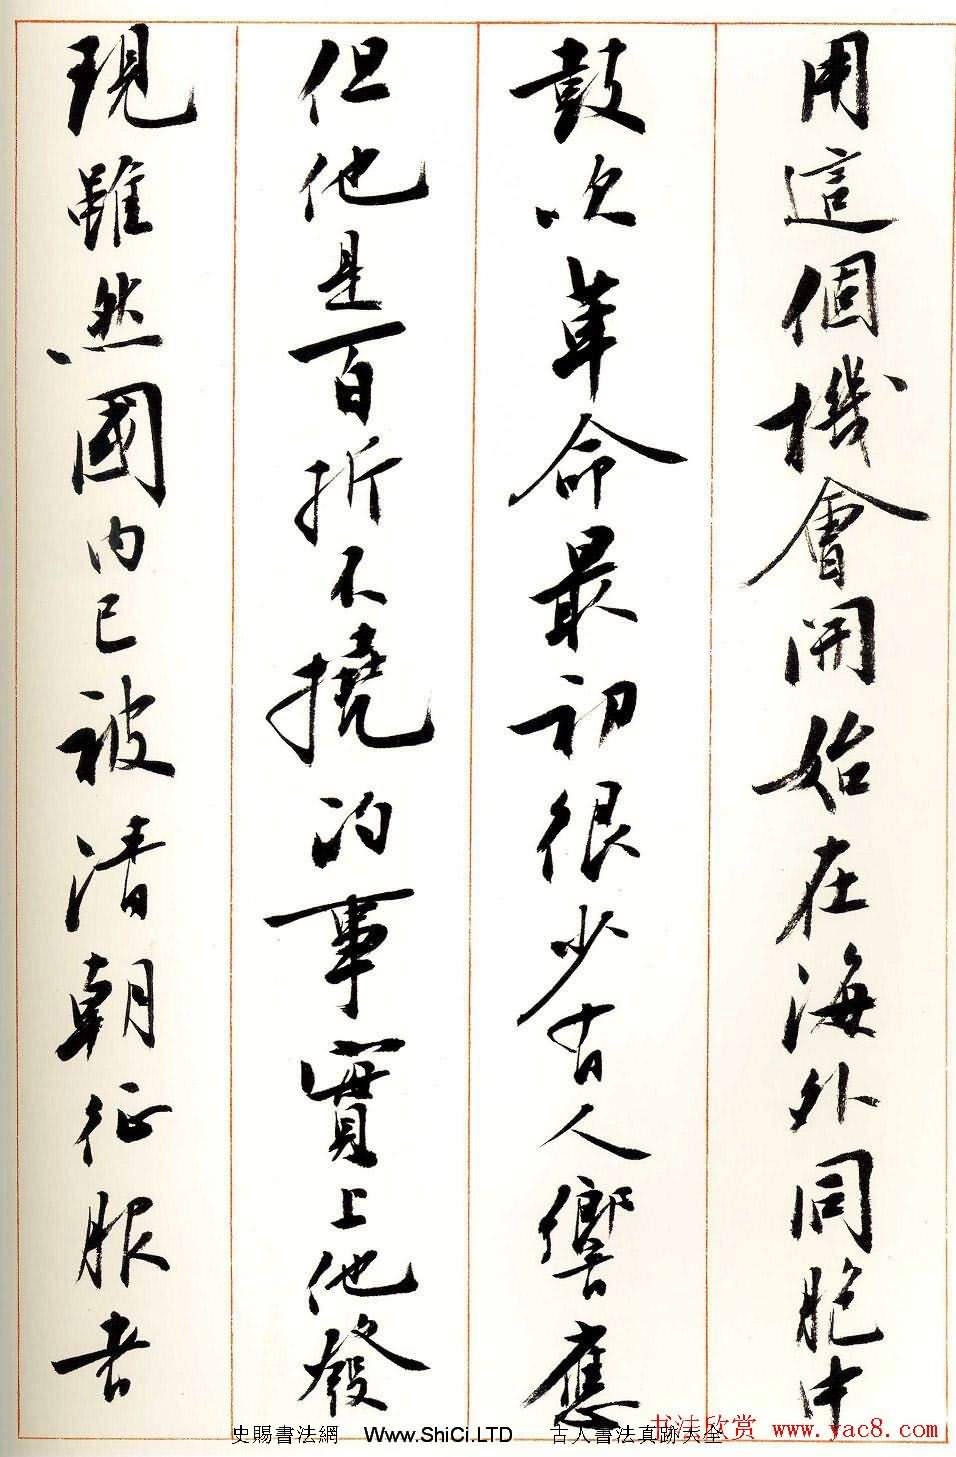 用這個機會開始在海外同胞中
鼓次革命最初很少有人響應
但他是百折不撓的事實上他發
現雖然國内已被清朝征服者
史賜書法網 Www.ShiCi.LTD 古人書法真跡大全
书法欣赏 www.yac8.com